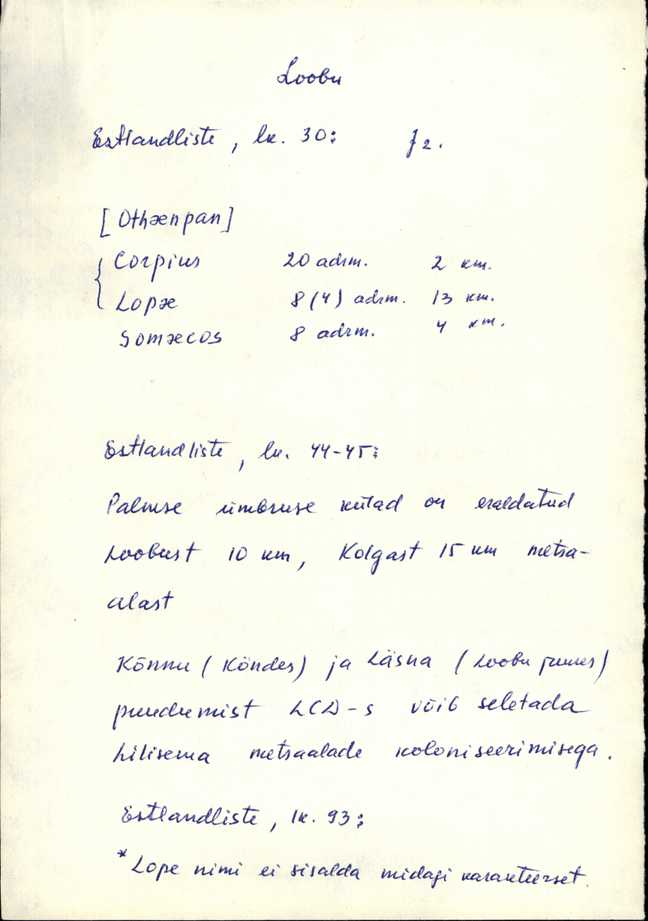 Loobu
Estlandliste, lk. 30: f 2.
[Othænpan]
Corpius 20 adrm. 2 km.
Lopæ 8 (4) adrm. 13 km.
Somæcos 8 adrm. 4 km.
Estlandliste, lk. 44-45:
Palmse ümbruse külad on eraldatud
Loobust 10 km, Kolgast 15 km metsa-
alast
Kõnnu (Köndes) ja Läsna (Loobu juures)
puudumist LCD-s võib seletada
hilisema metsaalade koloniseerimisega.
Estlandliste, lk. 93:
* Lope nimi ei sisalda midagi karakteerset.